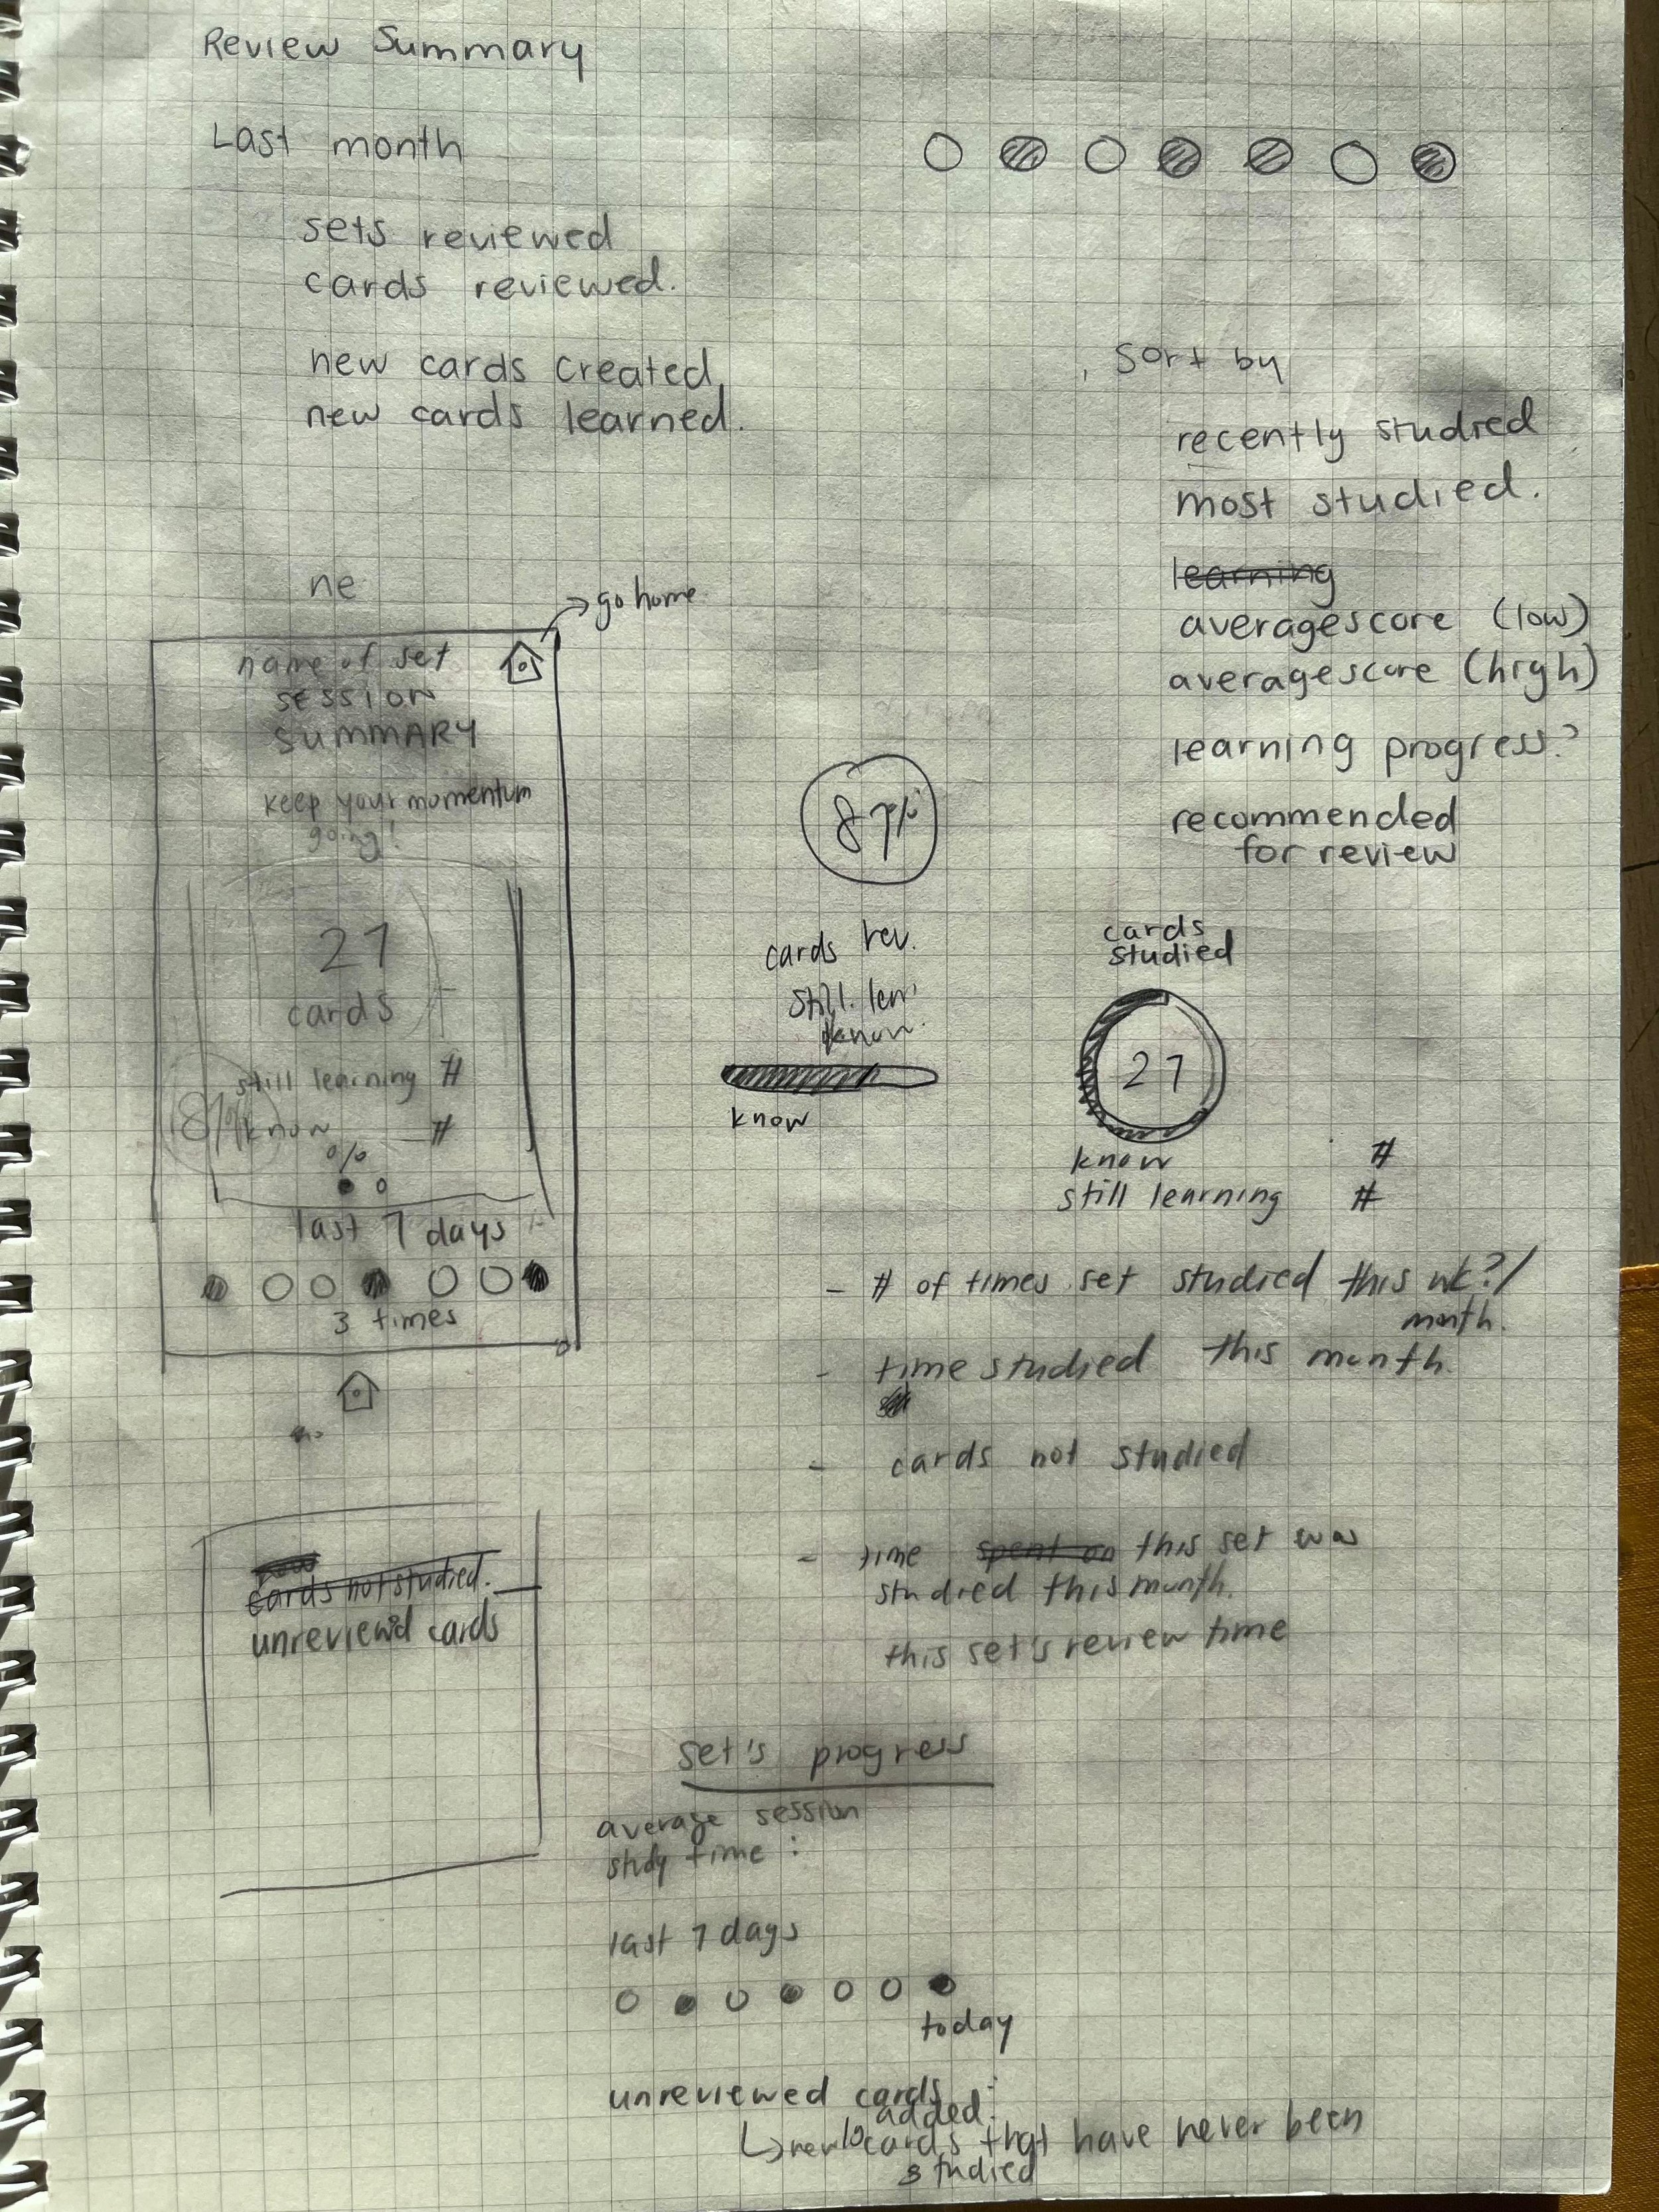 Review Summary
Last month
sets reviewed
cards reviewed.
new cards created,
new cards learned.
sort by
recently studied
most studied.
learning
averagescore (low)
averagescore (high)
learning progress?
recommended
for review
ne
go home
name of set
SESSION
SUMMARY
keep your momentum
going!
27
cards
still learning #
know #
%
last 7 days
3 times
87%
cards rev.
still
know.
know
cards
studied
27
know #
still learning #
- # of times set studied this wk?/
month.
- time studied this month.
- cards not studied
- time spent on this set was
studied this month.
this set's review time
cards not studied.
unreviewed cards
set's progress
average session
study time :
last 7 days
today
unreviewed cards :
added.
cards that have never been
studied